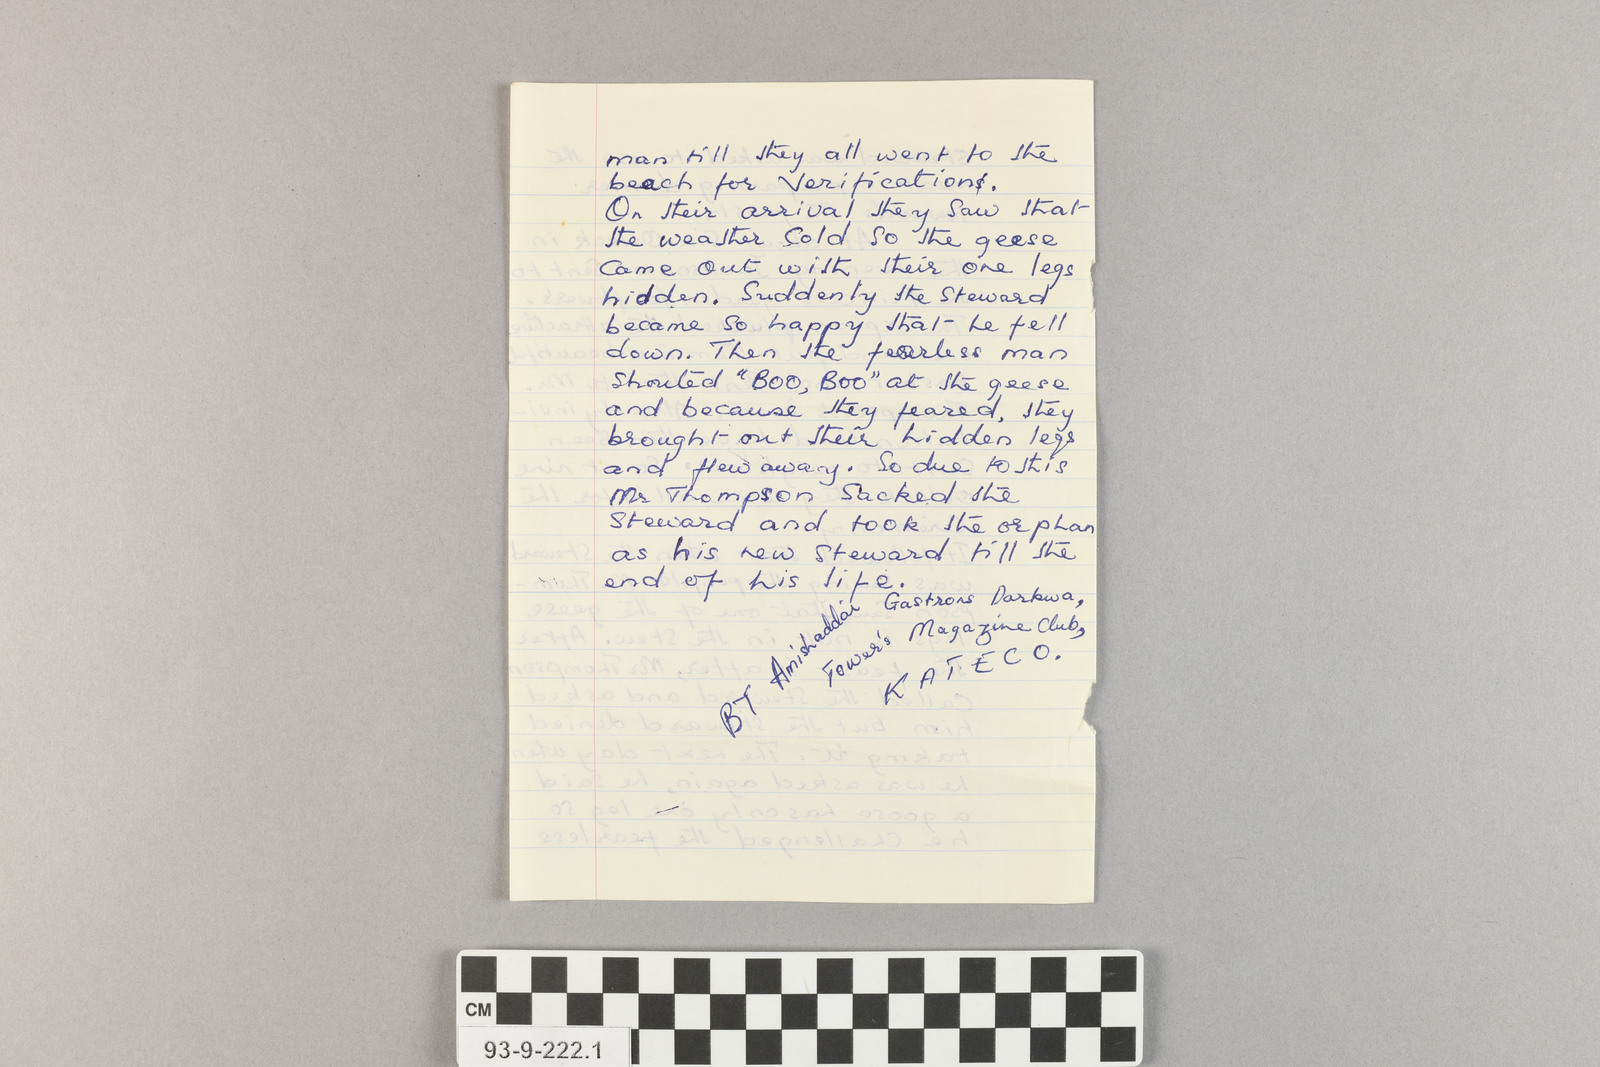 man till they all went to the
beach for Verifications.
On their arrival they saw that
the weather cold so the geese
came out with their one legs
hidden. Suddenly the steward
became so happy that he fell
down. Then the fearless man
shouted "BOO, BOO" at the geese
and because they feared, they
brought out their hidden legs
and flew away. So due to this
Mr Thompson Sacked the
Steward and took the orphan
as his new steward till the
end of his life.
BT Amishaddai Gastrons Darkwa,
Tower's Magazine Club,
KATECO.
CM
93-9-222.1